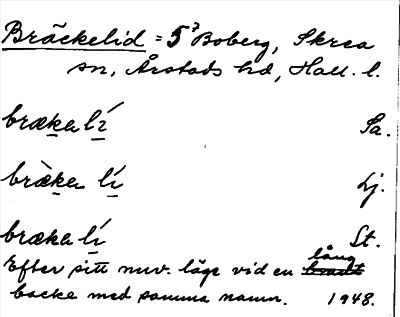 Bräckelid = 5⁷ Boberg, Skrea
sn, Årstads hd, Hall. l.
bræka lí Sa.
bræ̀ka lí Lj.
bræka lí St.
Efter sitt nuv. läge vid en lång
backe med samma namn. 1948.